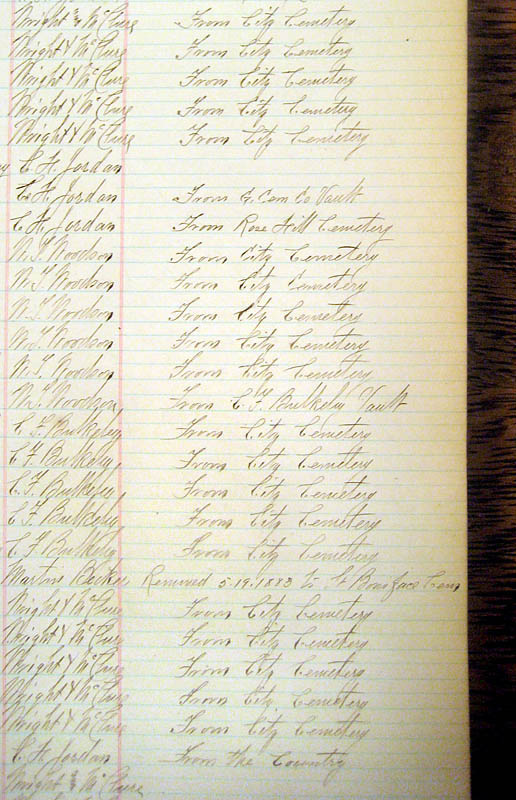 Wright & McClure From City Cemetery
Wright & McClure From City Cemetery
Wright & McClure From City Cemetery
Wright & McClure From City Cemetery
Wright & McClure From City Cemetery
C H Jordan
C H Jordan From G. Cem Co Vault
C H Jordan From Rose Hill Cemetery
W. T. Woodson From City Cemetery
W. T. Woodson From City Cemetery
W. T. Woodson From City Cemetery
W. T. Woodson From City Cemetery
W. T. Woodson From City Cemetery
W. T. Woodson From C. F. Bulkeley Vault
C F Bulkeley From City Cemetery
C F Bulkeley From City Cemetery
C. F. Bulkeley From City Cemetery
C F Bulkeley From City Cemetery
C F Bulkeley From City Cemetery
Martin Becker Removed 5-19-1883 to St Boniface Cem
Wright & McClure From City Cemetery
Wright & McClure From City Cemetery
Wright & McClure From City Cemetery
Wright & McClure From City Cemetery
Wright & McClure From City Cemetery
C H Jordan From the Country
Wright & McClure